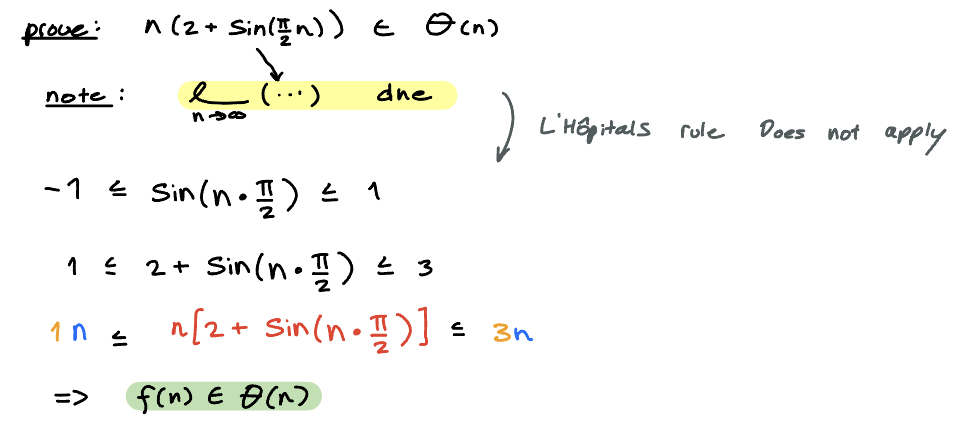 prove: n(2 + sin(π/2 n)) ∈ Θ(n)
note: lim n→∞ (...) dne
L'Hôpitals rule Does not apply
-1 ≤ sin(n · π/2) ≤ 1
1 ≤ 2 + sin(n · π/2) ≤ 3
1n ≤ n[2 + sin(n · π/2)] ≤ 3n
=> f(n) ∈ Θ(n)